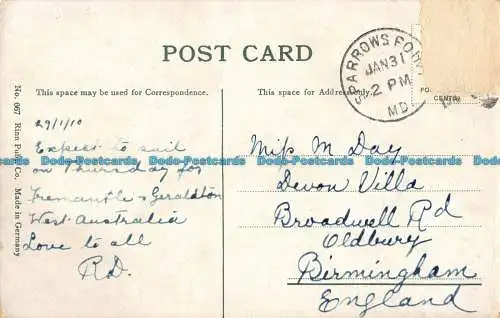 POST CARD
SPARROWS POINT
JAN 31
2 PM
MD
This space may be used for Correspondence.
This space for Address only.
CENTS
No. 667 Rinn Publ. Co. Made in Germany
29/1/10
Expect to sail
on Thursday for
Fremantle & Geraldton
West Australia
Love to all
R.D.
Miss M Day
Devon Villa
Broadwell Rd
Oldbury
Birmingham
England
Dodo-Postcards Dodo-Postcards Dodo-Postcards Dodo-Postcards Dodo-Postcards
Dodo-Postcards Dodo-Postcards Dodo-Postcards Dodo-Postcards Dodo-Postcards